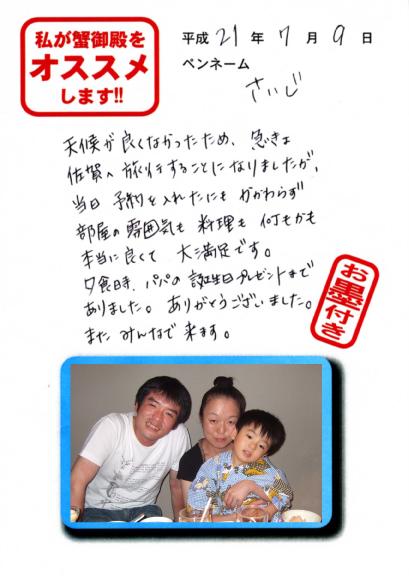 私が蟹御殿を
オススメ
します!!
平成 21 年 7 月 9 日
ペンネーム
さいじ
天候が良くなかったため、急きょ
佐賀へ旅行することになりましたが、
当日 予約を入れたにもかかわらず
部屋の雰囲気も 料理も 何もかも
本当に良くて 大満足です。
夕食時、パパの誕生日プレゼントまで
ありました。ありがとうございました。
また みんなで 来ます。
お墨付き